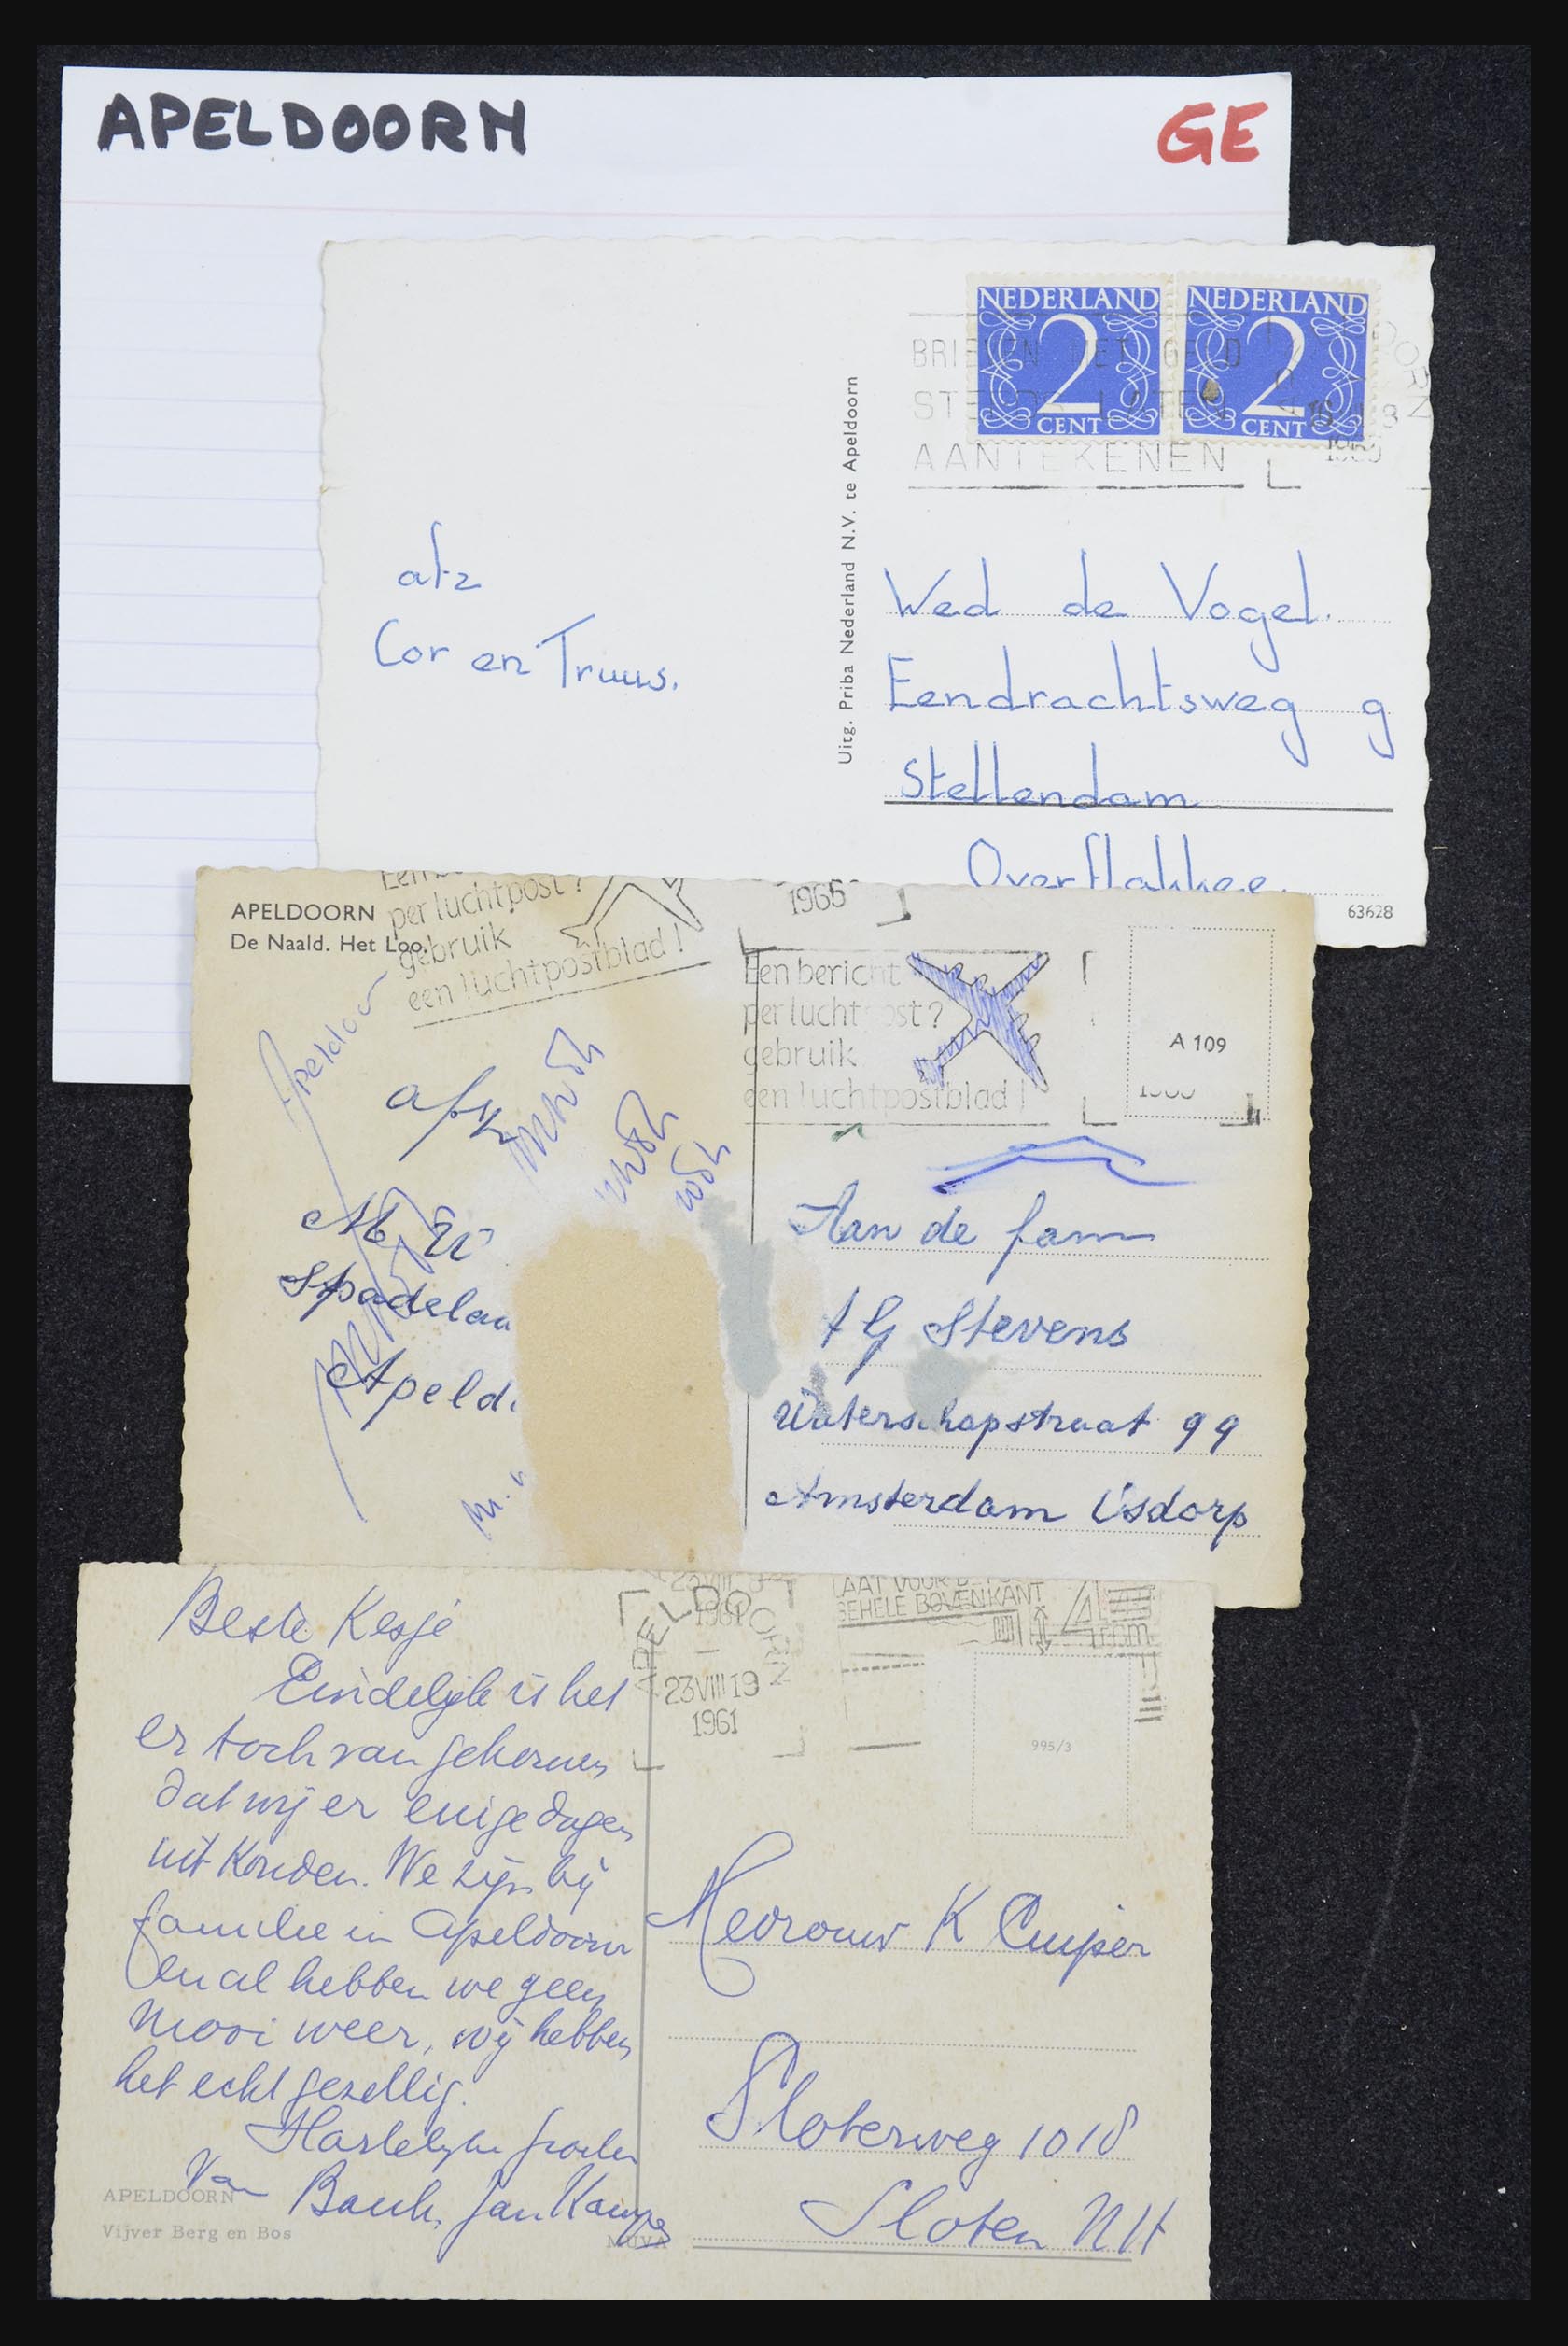 APELDOORN
GE
NEDERLAND
2
CENT
NEDERLAND
2
CENT
BRIEVEN MET GELD
STEEDS LATEN
AANTEKENEN
Uitg. Priba Nederland N.V. te Apeldoorn
afz
Cor en Truus.
Wed de Vogel.
Eendrachtsweg 9
Stellendam
Overflakkee.
63628
APELDOORN
De Naald. Het Loo.
per luchtpost?
gebruik
een luchtpostblad!
1965
Een bericht
per luchtpost?
gebruik
een luchtpostblad!
A 109
Apeldoor
afz
Spadelaa
Apeld
Aan de fam
Stevens
Waterschapstraat 99
Amsterdam Osdorp
Beste Kesje
Eindelijk is het
er toch van gekomen
dat wij er enige dagen
uit konden. We zijn bij
familie in Apeldoorn
en al hebben we geen
mooi weer, wij hebben
het echt gezellig.
Hartelijke groeten
Van
Jan Kamps
APELDOORN
Vijver Berg en Bos
MUVA
APELDOORN
23 VIII 19
1961
GEHELE BOVENKANT
4 cm
995/3
Mevrouw K Cuiper
Sloterweg 1018
Sloten NH